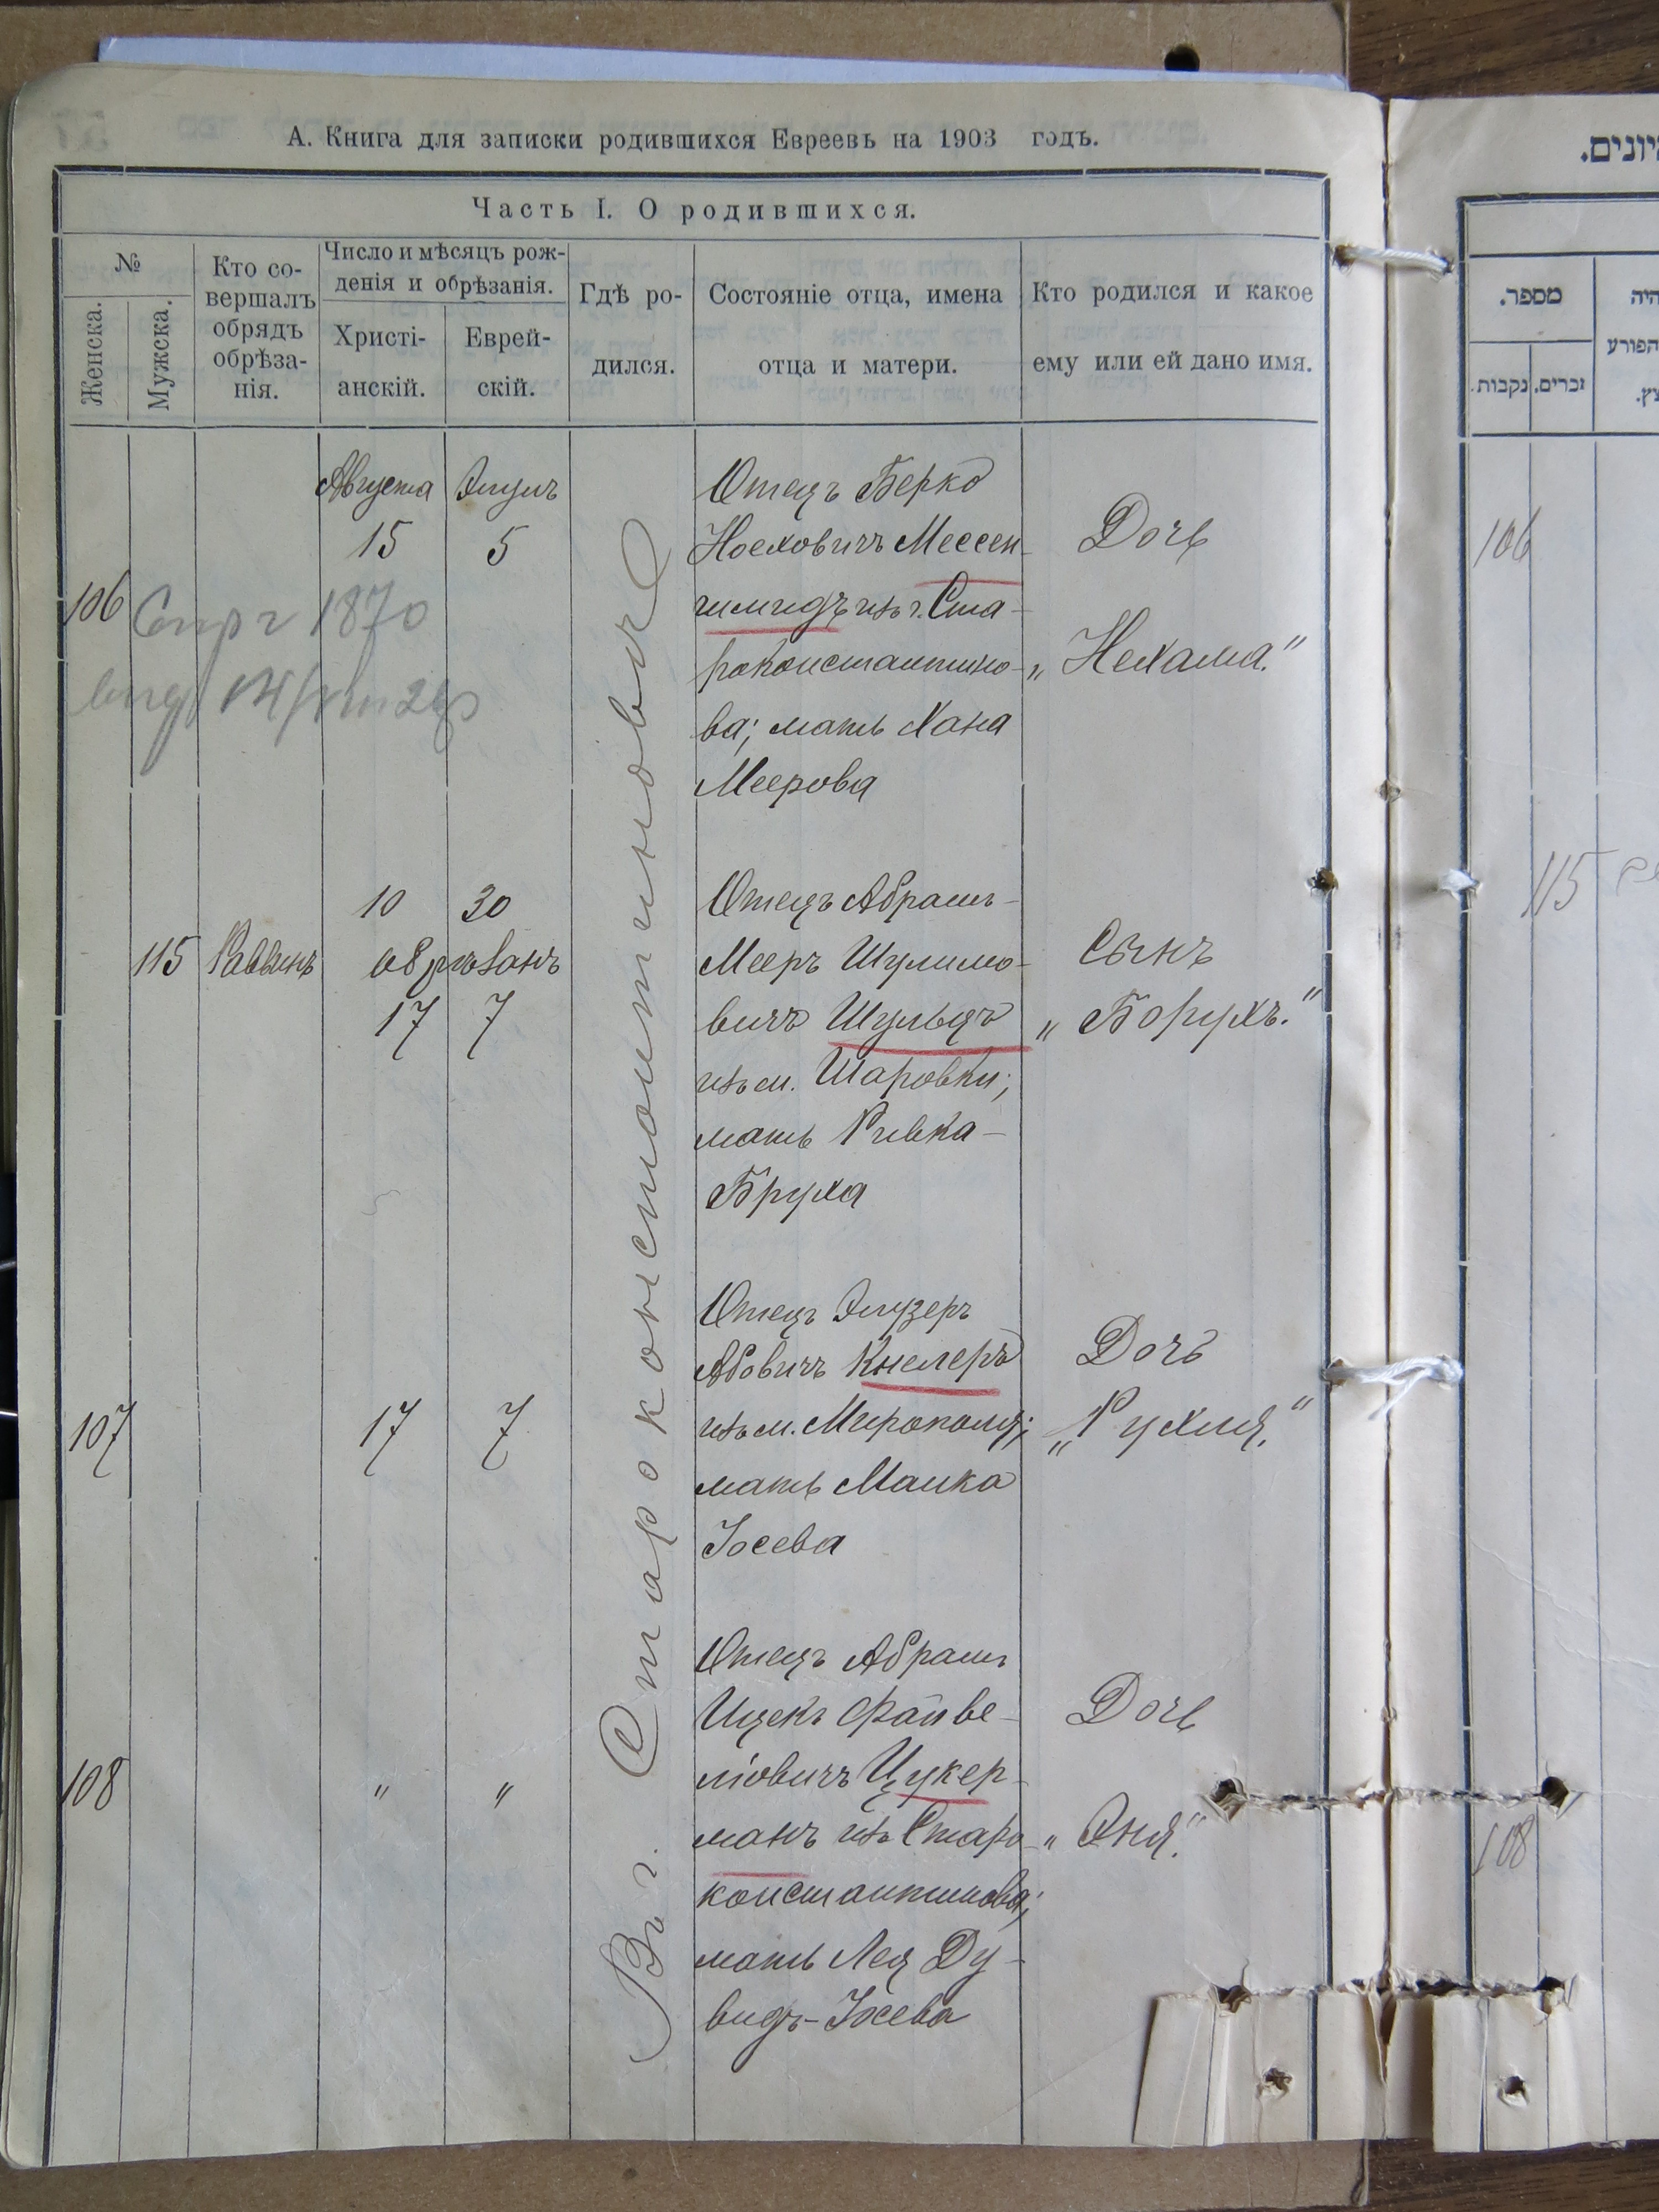 А. Книга для записки родившихся Евреевъ на 1903 годъ.
Часть I. О родившихся.
№
Женска.
Мужска.
Кто со-
вершалъ
обрядъ
обрѣза-
нія.
Число и мѣсяцъ рож-
денія и обрѣзанія.
Христі-
анскій.
Еврей-
скій.
Гдѣ ро-
дился.
Состояніе отца, имена
отца и матери.
Кто родился и какое
ему или ей дано имя.
Въ г. Староконстантиновѣ
106
Августа Элулъ
15 5
Отецъ Берко
Носховичъ Мессен-
шмидъ изъ г. Ста-
роконстантино-
ва; мать Хана
Меерова
Дочь
„Нехама."
1870
115 Раввинъ
10 30
обрѣзанъ
17 7
Отецъ Абрамъ-
Мееръ Шулимо-
вичъ Шульцъ
изъ м. Шаровки;
мать Ривка-
Бруха
Сынъ
„Борухъ."
107
17 7
Отецъ Элузеръ
Абовичъ Кнелеръ
изъ м. Мирополя;
мать Малка
Іосева
Дочь
„Рухля."
108
" "
Отецъ Абрамъ
Ицекъ Файве-
ліовичъ Цукер-
манъ изъ Старо-
константинова;
мать Лея Ду-
видъ-Іосева
Дочь
„Эня."
יונים.
מספר.
זכרים.
נקבות.
היה
הפורע
106
115
108